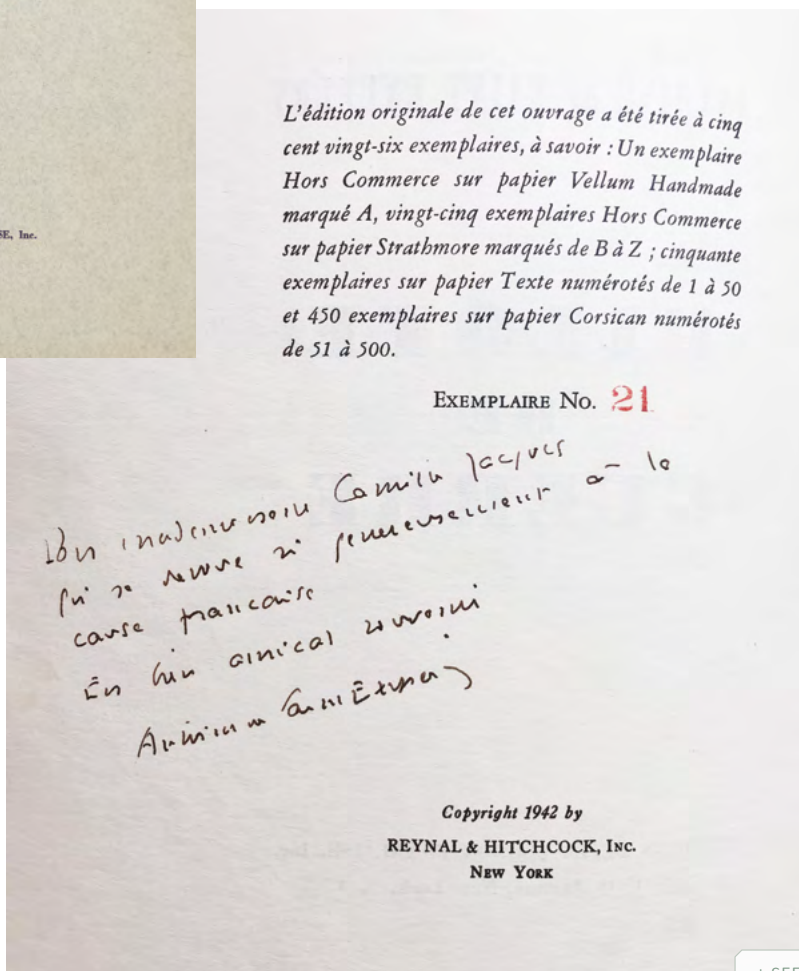 SE, Inc.
L'édition originale de cet ouvrage a été tirée à cinq
cent vingt-six exemplaires, à savoir : Un exemplaire
Hors Commerce sur papier Vellum Handmade
marqué A, vingt-cinq exemplaires Hors Commerce
sur papier Strathmore marqués de B à Z ; cinquante
exemplaires sur papier Texte numérotés de 1 à 50
et 450 exemplaires sur papier Corsican numérotés
de 51 à 500.
EXEMPLAIRE No. 21
Pour mademoiselle Jacques
qui se si genereusement à la
cause francaise
En bien amical souvenir
Antoine de Saint Exupery
Copyright 1942 by
REYNAL & HITCHCOCK, INC.
NEW YORK